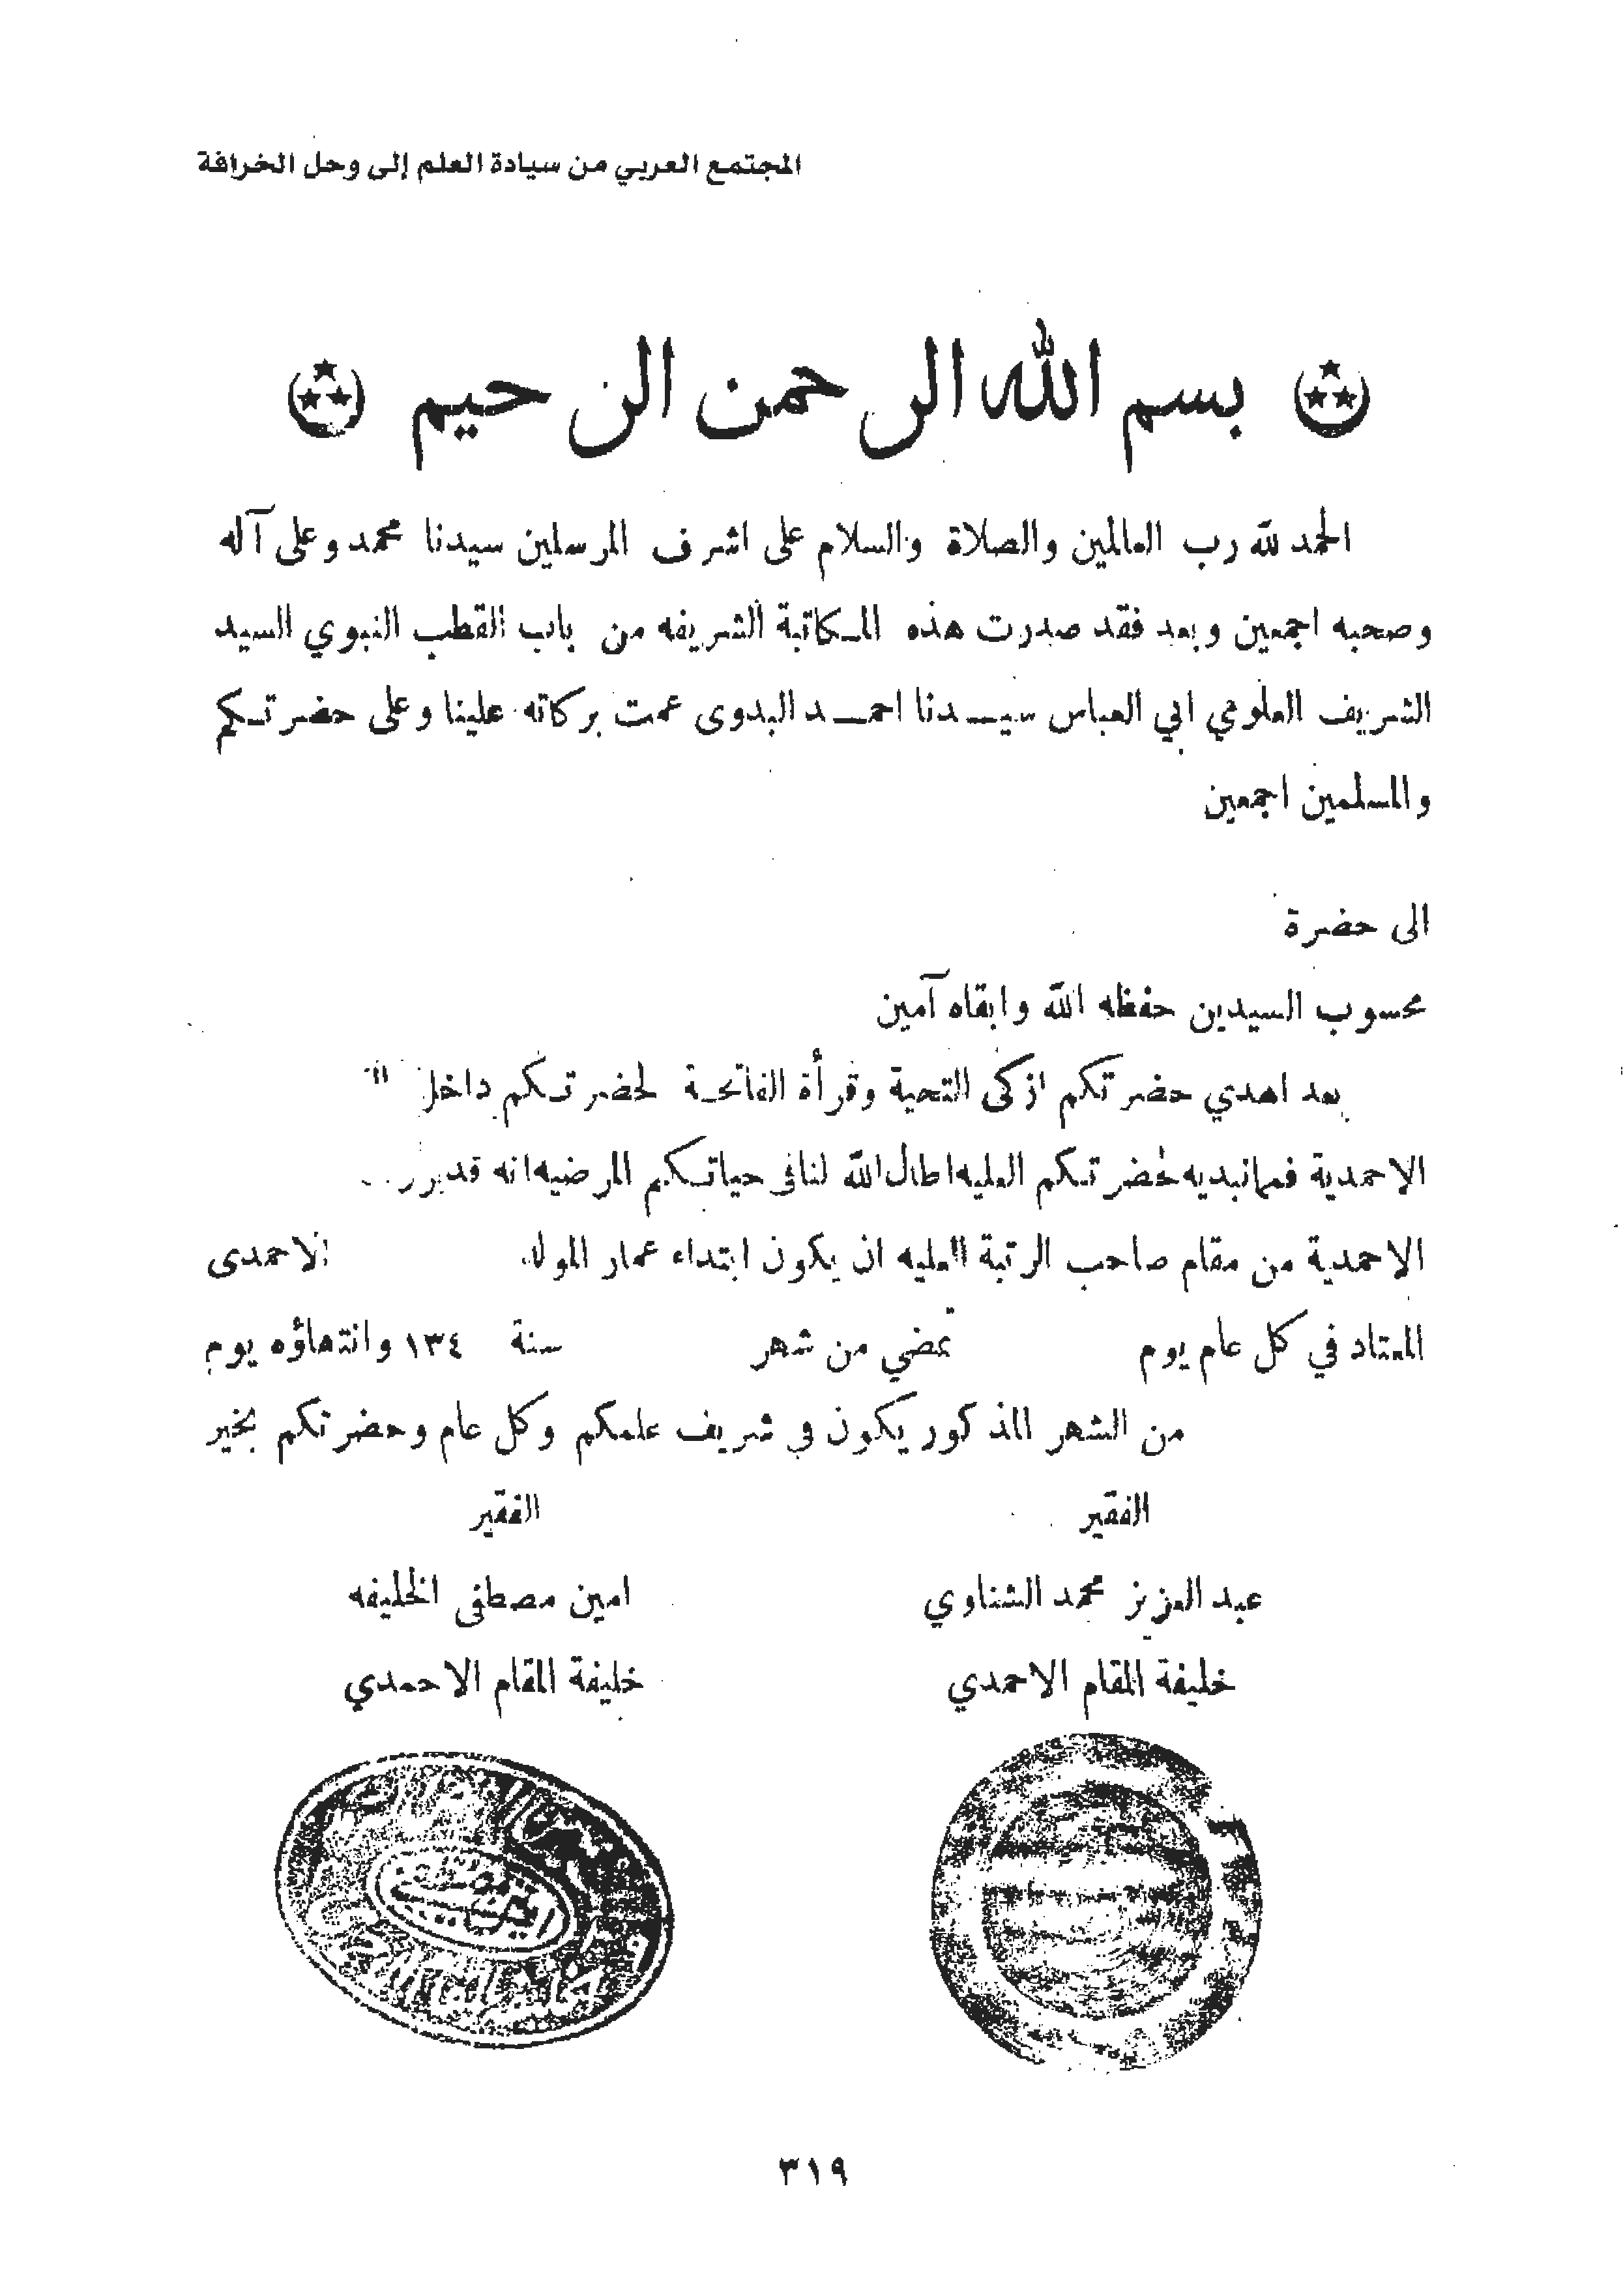 المجتمع العربي من سيادة العلم إلى وحل الخرافة
بسم الله الرحمن الرحيم
الحمد لله رب العالمين والصلاة والسلام على اشرف المرسلين سيدنا محمد وعلى آله
وصحبه اجمعين وبعد فقد صدرت هذه المكاتبة الشريفه من باب القطب النبوي السيد
الشريف العلوي ابي العباس سيدنا احمد البدوى عمت بركاته علينا وعلى حضرتكم
والمسلمين اجمعين
الى حضرة
محسوب السيدين حفظه الله وابقاه آمين
بعد اهدي حضرتكم ازكى التحية وقرأة الفاتحة لحضرتكم داخل
الاحمدية فما نبديه لحضرتكم العليه اطال الله لنا في حياتكم المرضيه انه قد
الاحمدية من مقام صاحب الرتبة العليه ان يكون ابتداء عمار المولد الاحمدى
المعتاد في كل عام يوم تمضي من شهر سنة ١٣٤ وانتهاؤه يوم
من الشهر المذكور يكون في شريف علمكم وكل عام وحضرتكم بخير
الفقير الفقير
عبد العزيز محمد الشناوي امين مصطفى الخليفه
خليفة المقام الاحمدي خليفة المقام الاحمدي
٣١٩